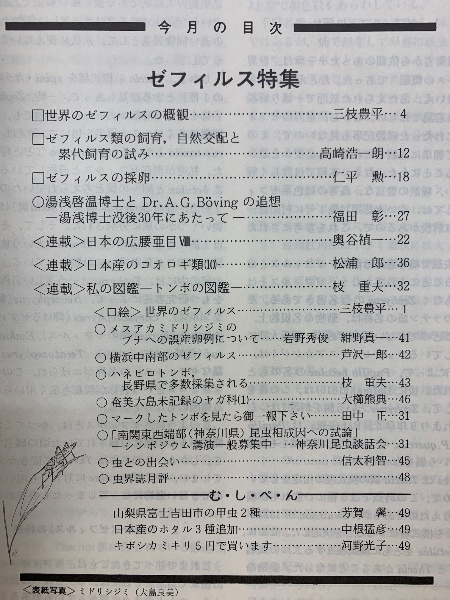 今月の目次
ゼフィルス特集
□世界のゼフィルスの概観……三枝豊平…4
□ゼフィルス類の飼育，自然交配と
累代飼育の試み……高崎浩一朗…12
□ゼフィルスの採卵……仁平 勲…18
○湯浅啓温博士と Dr. A. G. Böving の追想
―湯浅博士没後30年にあたって―……福田 彰…27
＜連載＞日本の広腰亜目Ⅷ……奥谷禎一…22
＜連載＞日本産のコオロギ類⑽……松浦一郎…36
＜連載＞私の図鑑―トンボの図鑑―……枝 重夫…32
＜口絵＞世界のゼフィルス……三枝豊平…1
○メスアカミドリシジミの
ブナへの誤産卵例について……岩野秀俊 紺野真一…41
○横浜中南部のゼフィルス……芦沢一郎…42
○ハネビロトンボ，
長野県で多数採集される……枝 重夫…43
○奄美大島未記録のヤガ科⑴……大橦熊典…46
○マークしたトンボを見たら御一報下さい……田中 正…31
○「南関東西端部（神奈川県）昆虫相成因への試論」
―シンポジウム講演一般募集中……神奈川昆虫談話会…31
○虫との出会い……信太利智…45
○虫界誌月評……48
む・し・ぺ・ん
山梨県富士吉田市の甲虫2種……芳賀 馨…49
日本産のホタル3種追加……中根猛彦…49
キボシカミキリ5円で買います……河野光子…49
＜表紙写真＞ミドリシジミ（大島良美）